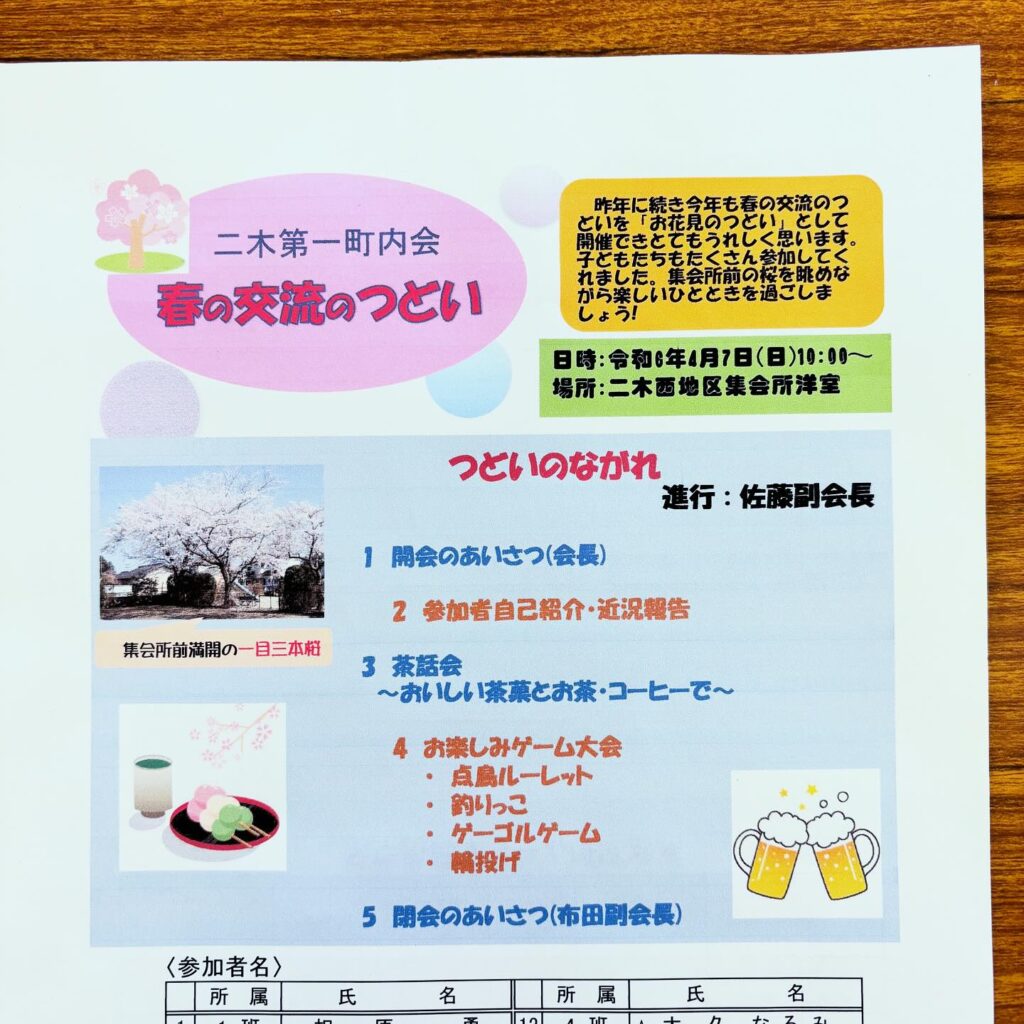 二木第一町内会
春の交流のつどい
昨年に続き今年も春の交流のつ
どいを「お花見のつどい」として
開催できとてもうれしく思います。
子どもたちもたくさん参加してく
れました。集会所前の桜を眺めな
がら楽しいひとときを過ごしま
しょう!
日時:令和6年4月7日(日)10:00～
場所:二木西地区集会所洋室
つどいのながれ
進行:佐藤副会長
1 開会のあいさつ(会長)
2 参加者自己紹介・近況報告
集会所前満開の一目三本桜
3 茶話会
～おいしい茶菓とお茶・コーヒーで～
4 お楽しみゲーム大会
・ 点鳥ルーレット
・ 釣りっこ
・ ゲーゴルゲーム
・ 輪投げ
5 閉会のあいさつ(布田副会長)
〈参加者名〉
所 属 氏 名 所 属 氏 名